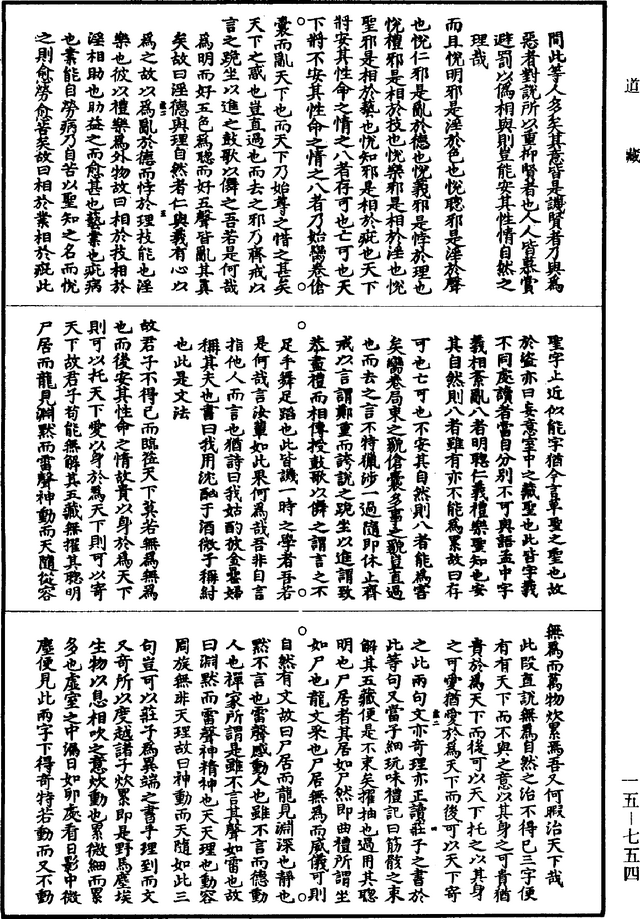 道藏
間此等人多矣其意皆是譏賢者乃與為
惡者對說所以重抑賢者也人人皆慕賞
避罰以偽相與則豈能安其性情自然之
理哉
而且悅明邪是淫於色也悅聰邪是淫於聲
也悅仁邪是亂於德也悅義邪是悖於理也
悅禮邪是相於技也悅樂邪是相於淫也悅
聖邪是相於藝也悅知邪是相於疵也天下
將安其性命之情之八者存可也亡可也天
下將不安其性命之情之八者乃始臠卷傖
囊而亂天下也而天下乃始尊之惜之甚矣
天下之惑也豈直過也而去之邪乃齊戒以
言之跪坐以進之鼓歌以儛之吾若是何哉
為明而好五色為聰而好五聲皆亂其真
矣故曰淫德與理自然者仁與義有心以
為之故以為亂於德而悖於理技能也淫
樂也彼以禮樂為外物故曰相於技相於
淫相助也助益之而愈甚也藝業也疵病
也業能自勞病乃自苦以聖知之名而悅
之則愈勞愈苦矣故曰相於業相於疵此
聖字止近似能字猶今言草聖之聖也故
於盜亦曰妄意室中之藏聖也此皆字義
不同處讀者當自分別不可與語孟中字
義相紊亂八者明聰仁義禮樂聖知也安
其自然則八者雖有亦不能為累故曰存
可也亡可也不安其自然則八者能為害
矣臠卷局束之貌傖囊多事之貌豈直過
也而去之言不特獵涉一過隨即休止齊
戒以言謂鄭重而誇說之跪坐以進謂致
恭盡禮而相傳授鼓歌以儛之謂言之不
足手舞足蹈也此皆譏一時之學者吾若
是何哉言汝輩如此果何為哉吾非自言
指他人而言也猶詩曰我姑酌彼金罍婦
稱其夫也書曰我用沈酗于酒微子稱紂
也此是文法
故君子不得已而臨莅天下莫若無為無為
也而後安其性命之情故貴以身於為天下
則可以托天下愛以身於為天下則可以寄
天下故君子苟能無解其五藏無擢其聰明
尸居而龍見淵默而雷聲神動而天隨從容
無為而萬物炊累焉吾又何暇治天下哉
此段直說無為自然之治不得已三字便
有有天下而不與之意以其身之可貴猶
貴於為天下而後可以天下托之以其身
之可愛猶愛於為天下而後可以天下寄
之此兩句文亦奇理亦正讀莊子之書於
此等句又當子細玩味禮記曰筋骸之束
解其五藏便是不束矣擢抽也過用其聰
明也尸居者其居如尸然即曲禮所謂坐
如尸也龍文采也尸居無為而威儀可則
自然有文故曰尸居而龍見淵深也靜也
默不言也雷聲感動人也雖不言而德動
人也禪家所謂是雖不言其聲如雷也故
曰淵默而雷聲神精神也天天理也動容
周旋無非天理故曰神動而天隨如此三
句豈可以莊子為異端之書乎理到而文
又奇所以度越諸子炊累即是野馬塵埃
生物以息相吹之意炊動也累微細而累
多也虛室之中漏日如卵處看日影中微
塵便見此兩字下得奇特若動而又不動
一五—七五四